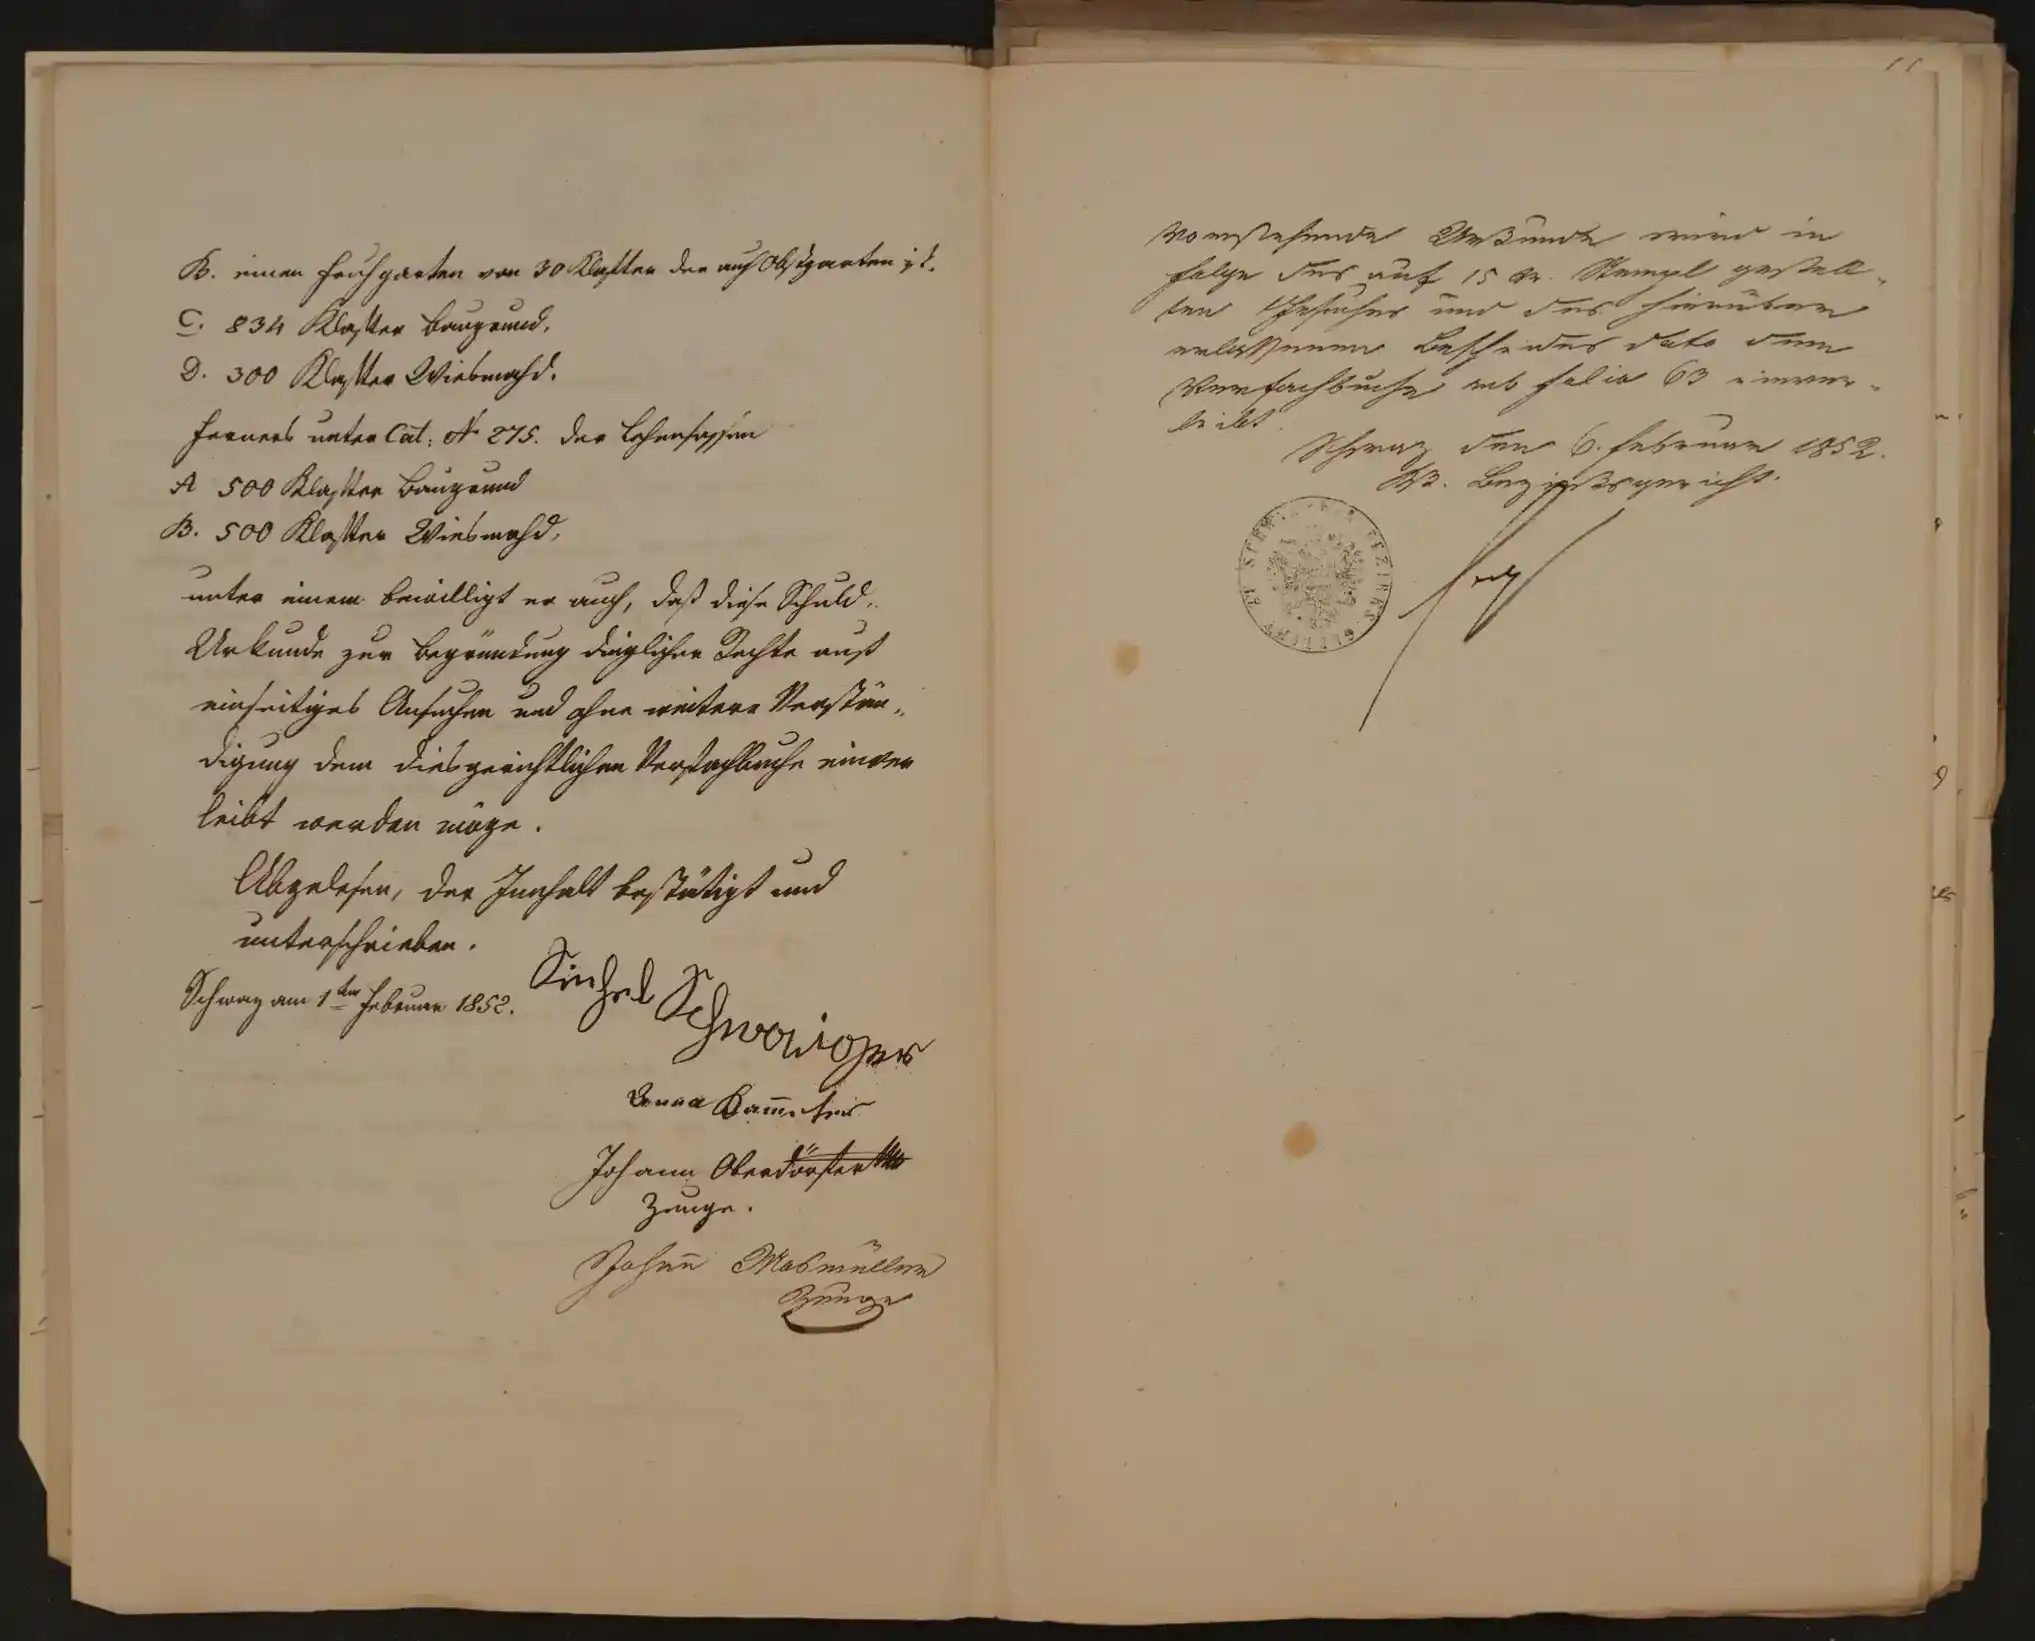 B. einen Frühgarten von 30 Klafter der auch Obstgarten ist.
C. 834 Klafter Baugrund,
D. 300 Klafter Wiesmahd.
Ferners unter Cat: No 275. der Lehensassen
A 500 Klafter Baugrund
B. 500 Klafter Wiesmahd,
unter einem bewilligt er auch, daß diese Schuld-
Urkunde zur Begründung dinglicher Rechte auf
einseitiges Ansuchen und ohne weitere Verstän-
digung dem diesgerichtlichen Verfachbuche einver
leibt werden möge.
Abgelesen, der Innhalt bestätigt und
unterschrieben.
Schwaz am 1ten Februar 1852.
Schwaiger
Anna
Johann Oberdörfer
Zeuge.
Johann Mosmüller
Zeuge
11
Vorstehende Urkunde wird in
Folge des auf 15 Kr. Stempl gestell-
ten Gesuches und des hierüber
erlassenen Bescheides dato dem
Verfachbuche sub folio 63 einver-
leibt.
Schwaz den 6. Februar 1852.
KK. Bezirksgericht.